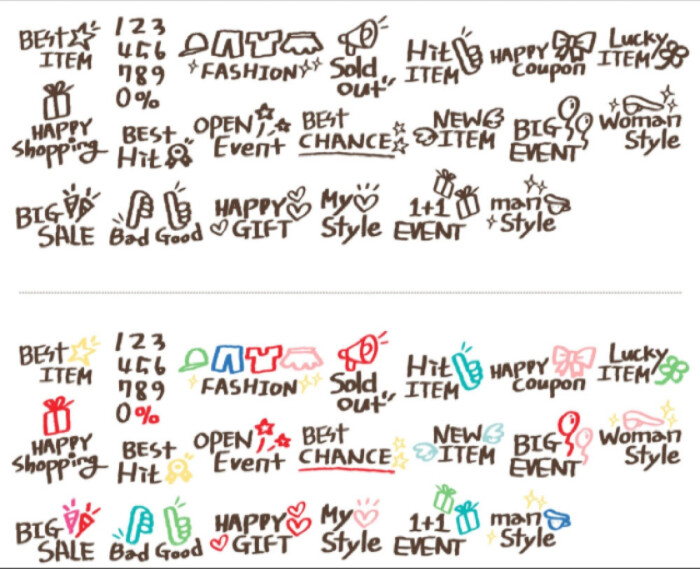 BESt
ITEM
1 2 3
4 5 6
7 8 9
0 %
FASHION
Sold
out
Hit
ITEM
HAPPY
Coupon
Lucky
ITEM
HAPPY
Shopping
BEST
Hit
OPEN
Event
BEST
CHANCE
NEW
ITEM
BIG
EVENT
Woman
Style
BIG
SALE
Bad Good
HAPPY
GIFT
My
Style
1+1
EVENT
man
Style
BESt
ITEM
1 2 3
4 5 6
7 8 9
0 %
FASHION
Sold
out
Hit
ITEM
HAPPY
Coupon
Lucky
ITEM
HAPPY
Shopping
BEST
Hit
OPEN
Event
BEST
CHANCE
NEW
ITEM
BIG
EVENT
Woman
Style
BIG
SALE
Bad Good
HAPPY
GIFT
My
Style
1+1
EVENT
man
Style